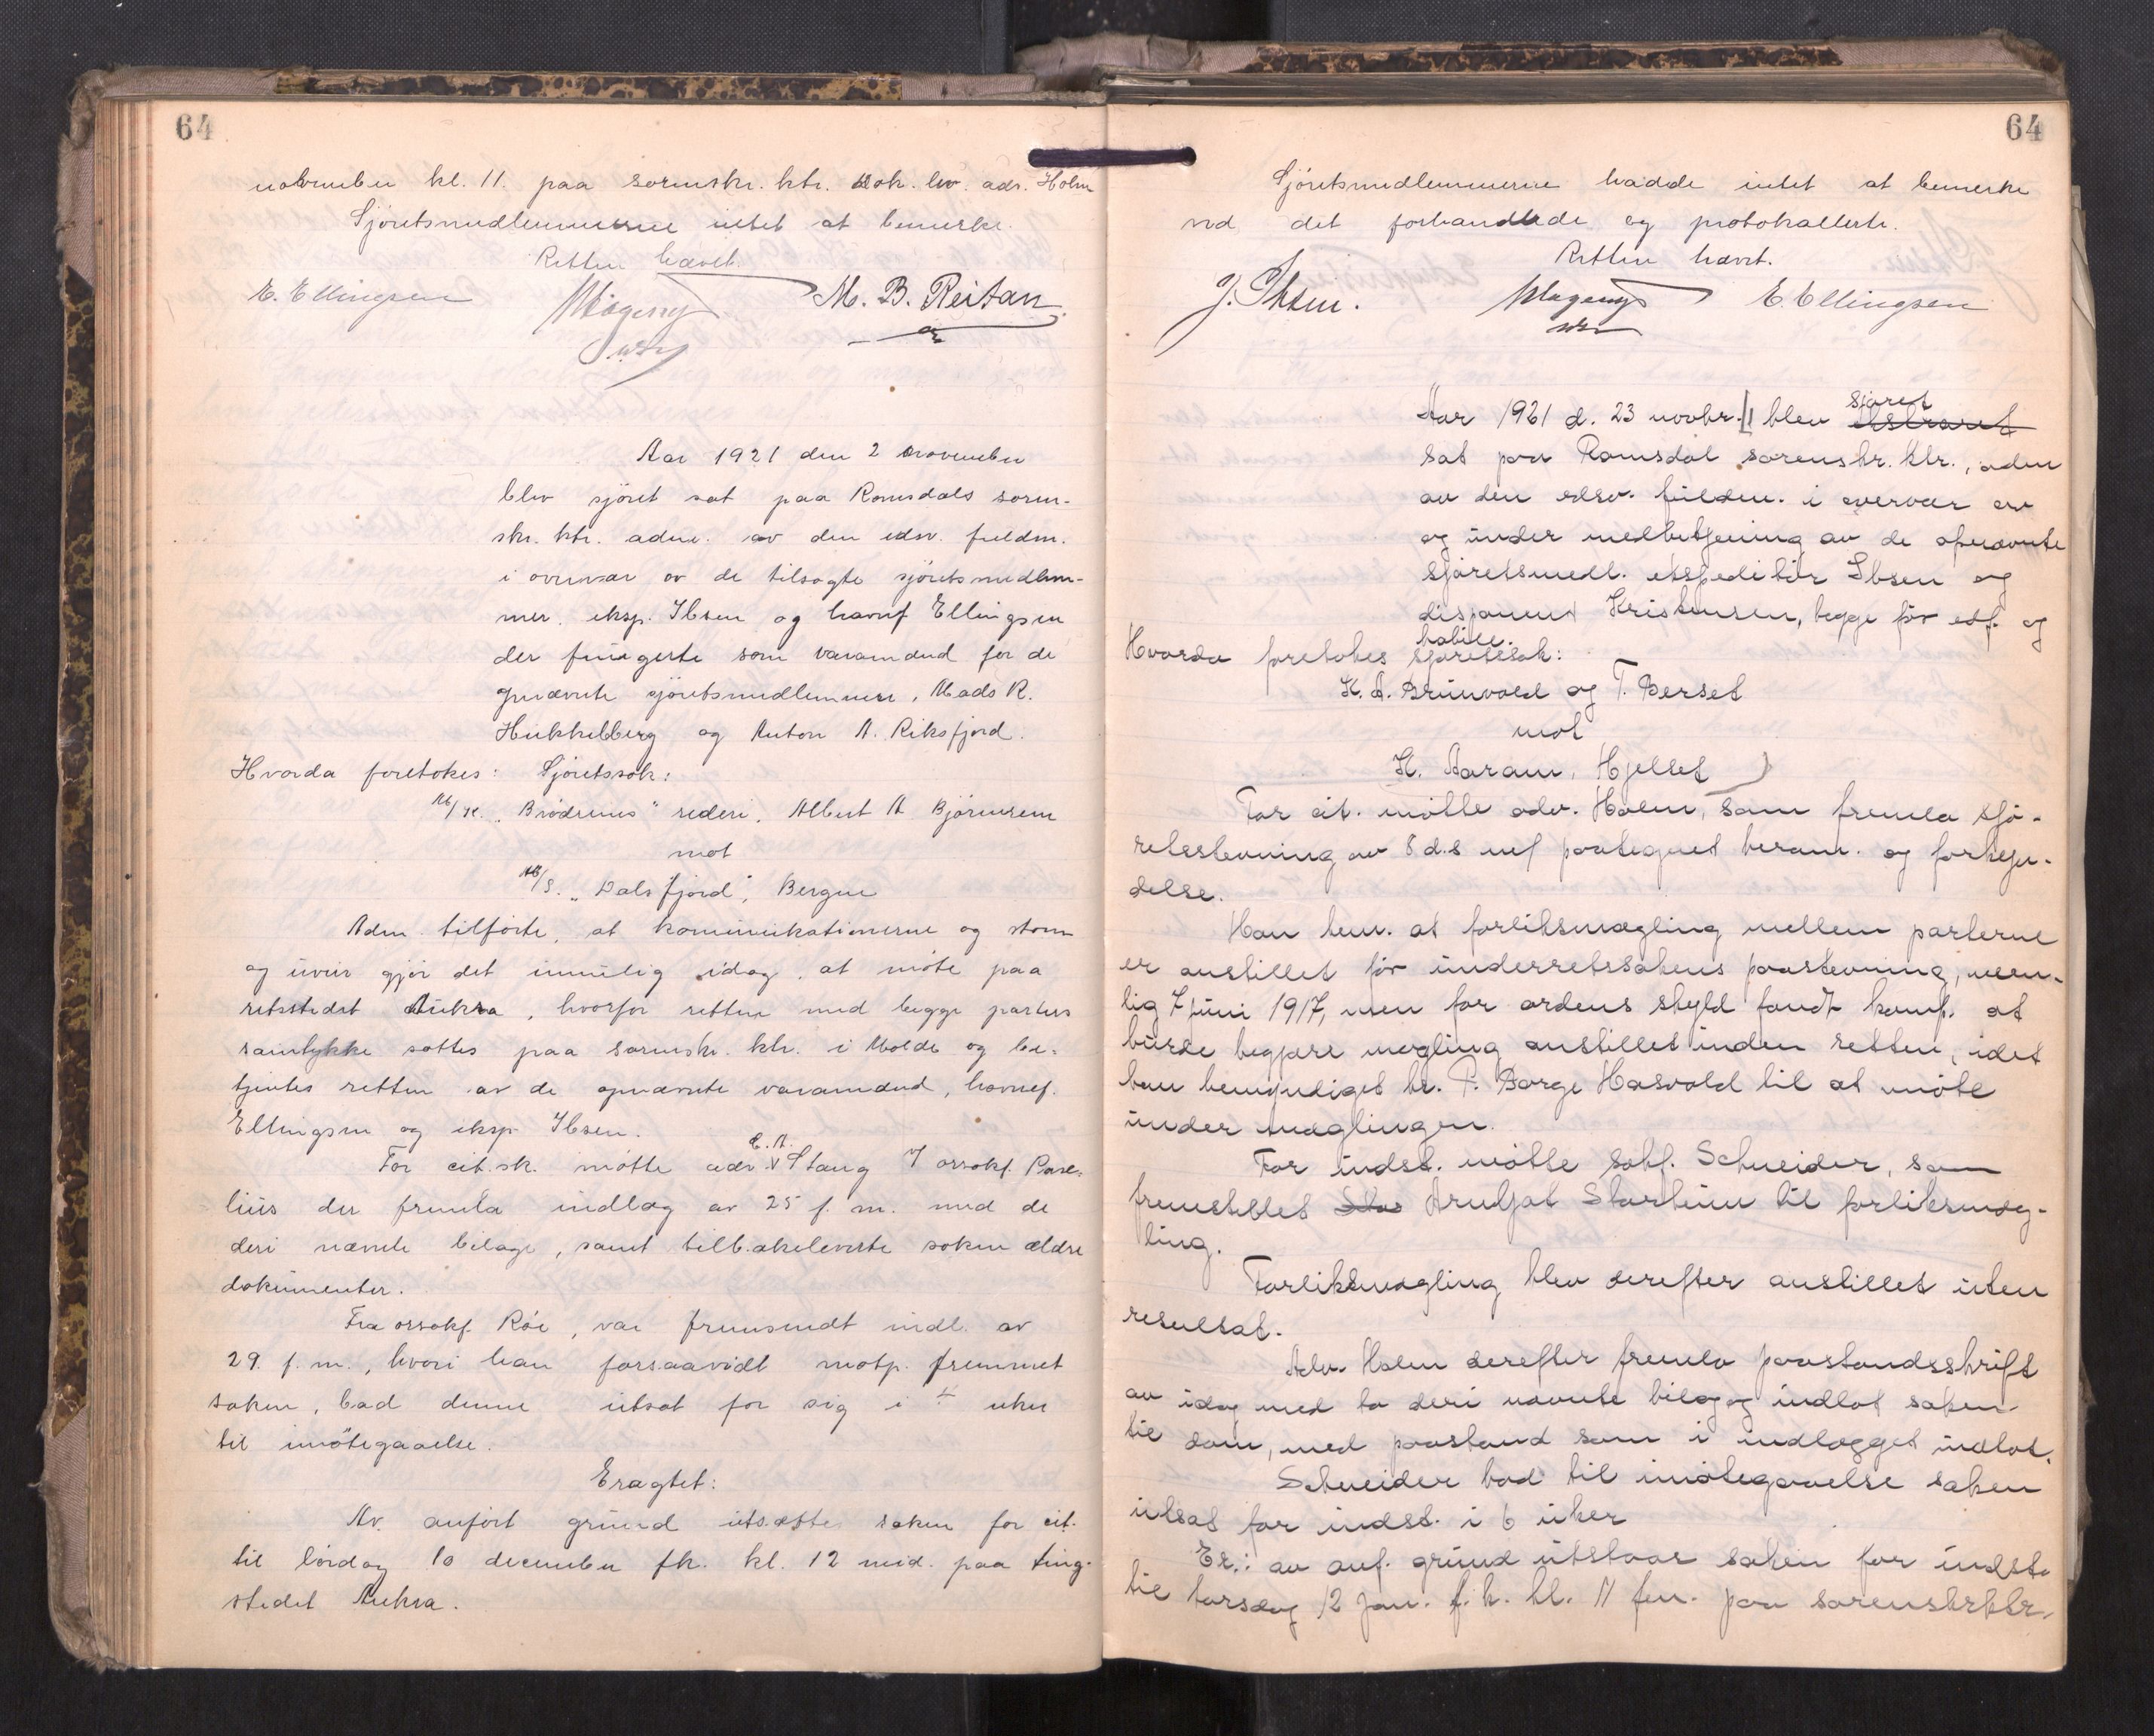 64
november kl. 11. paa sorenskr. ktr. Dok. lev. adv. Holm
Sjöretsmedlemmerne intet at bemerke.
Retten hævet.
E. Ellingsen M. B. Reitan
Aar 1921 den 2 november
blev sjöret sat paa Romsdals soren-
skr. ktr. adm. av den edsv. fuldm.
i overvær av de tilsagte sjöretsmedlem-
mer. eksp. Ibsen og havnf Ellingsen
der fungerte som varamænd for de
opnævnte sjöretsmedlemmer, Mads R.
Hukkelberg og Anton A. Riksfjord.
Hvorda foretokes: Sjöretssak:
M/K. „Brödrenes" rederi, Albert A Björnerem
mot
M/S. „Dalsfjord", Bergen
Adm. tilförte, at kommunikationerne og storm
og uveir gjör det umulig idag, at möte paa
retsstedet Aukra, hvorfor retten med begge parters
samtykke sattes paa sorenskr. ktr. i Molde og be-
tjentes retten av de opnævnte varamænd, havnef.
Ellingsen og eksp. Ibsen.
For cit. sk. mötte adv. C. A. Stang v/ orsakf. Pare-
lius der fremla indlæg av 25 f. m. med de
deri nævnte bilage, samt tilbakeleverte saken ældre
dokumenter.
Fra orsakf. Röe, var fremsendt indl. av
29. f. m., hvori han forsaavidt motp. fremmet
saken, bad denne utsat for sig i 4 uker
til imötegaaelse.
Eragtet:
Av. anfört grund utsættes saken for cit.
til lördag 10 december fk. kl. 12 mid. paa ting-
stedet Aukra.
64
Sjöretsmedlemmerne hadde intet at bemerke
ved det forhandlede og protokollerte.
Retten hævet.
J. Ibsen. E. Ellingsen
Aar 1921 d. 23 novbr. blev sjöret ekstraret
sat paa Romsdal sorenskr. ktr., adm
av den edsv. fuldm. i overvær av
og under medbetjening av de opnævnte
sjöretsmedl. ekspeditör Ibsen og
disponent Kristensen, begge för edf. og
habile.
Hvorda foretokes sjöretssak:
K. A. Brunvold og T. Berset
mot
K. Aaram, Hjellet
For cit. mötte adv. Holm, som fremla sjö-
retsstevning av 8 d.s med paategnet beram. og forkyn-
delse.
Han bem. at forliksmægling mellem parterne
er anstillet för underretssakens paastevning, nem-
lig 7 juni 1917, men for ordens skyld fandt komp. at
burde begjære mægling anstillet inden retten, idet
han bemyndiget hr. P. Borge Hasvold til at möte
under mæglingen.
For indst. mötte sakf. Schneider, som
fremstillet Stor Arnljot Storheim til forliksmæg-
ling.
Forliksmægling blev derefter anstillet uten
resultat.
Adv. Holm derefter fremla paastandsskrift
av idag med to deri nævnte bilag og indlot saken
til dom, med paastand som i indlægget indtat.
Schneider bad til imötegaaelse saken
utsat for indst. i 6 uker
Er.: av anf. grund utstaar saken for indst.
til torsdag 12 jan. f. k. kl. 11 fm. paa sorenskrktr.